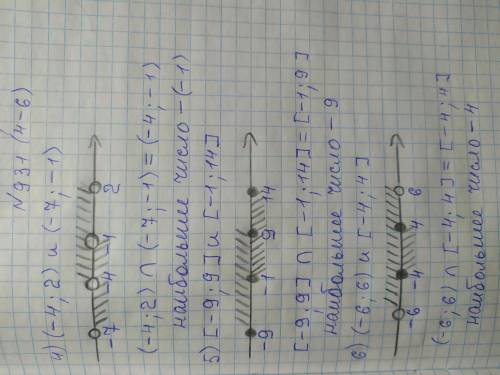 №931 (4-6)
4) (-4; 2) и (-7; -1)
-7 -4 -1 2
(-4; 2) ∩ (-7; -1) = (-4; -1)
наибольшее число - (-1)
5) [-9; 9] и [-1; 14]
-9 -1 9 14
[-9; 9] ∩ [-1; 14] = [-1; 9]
наибольшее число - 9
6) (-6; 6) и [-4; 4]
-6 -4 4 6
(-6; 6) ∩ [-4; 4] = [-4; 4]
наибольшее число - 4